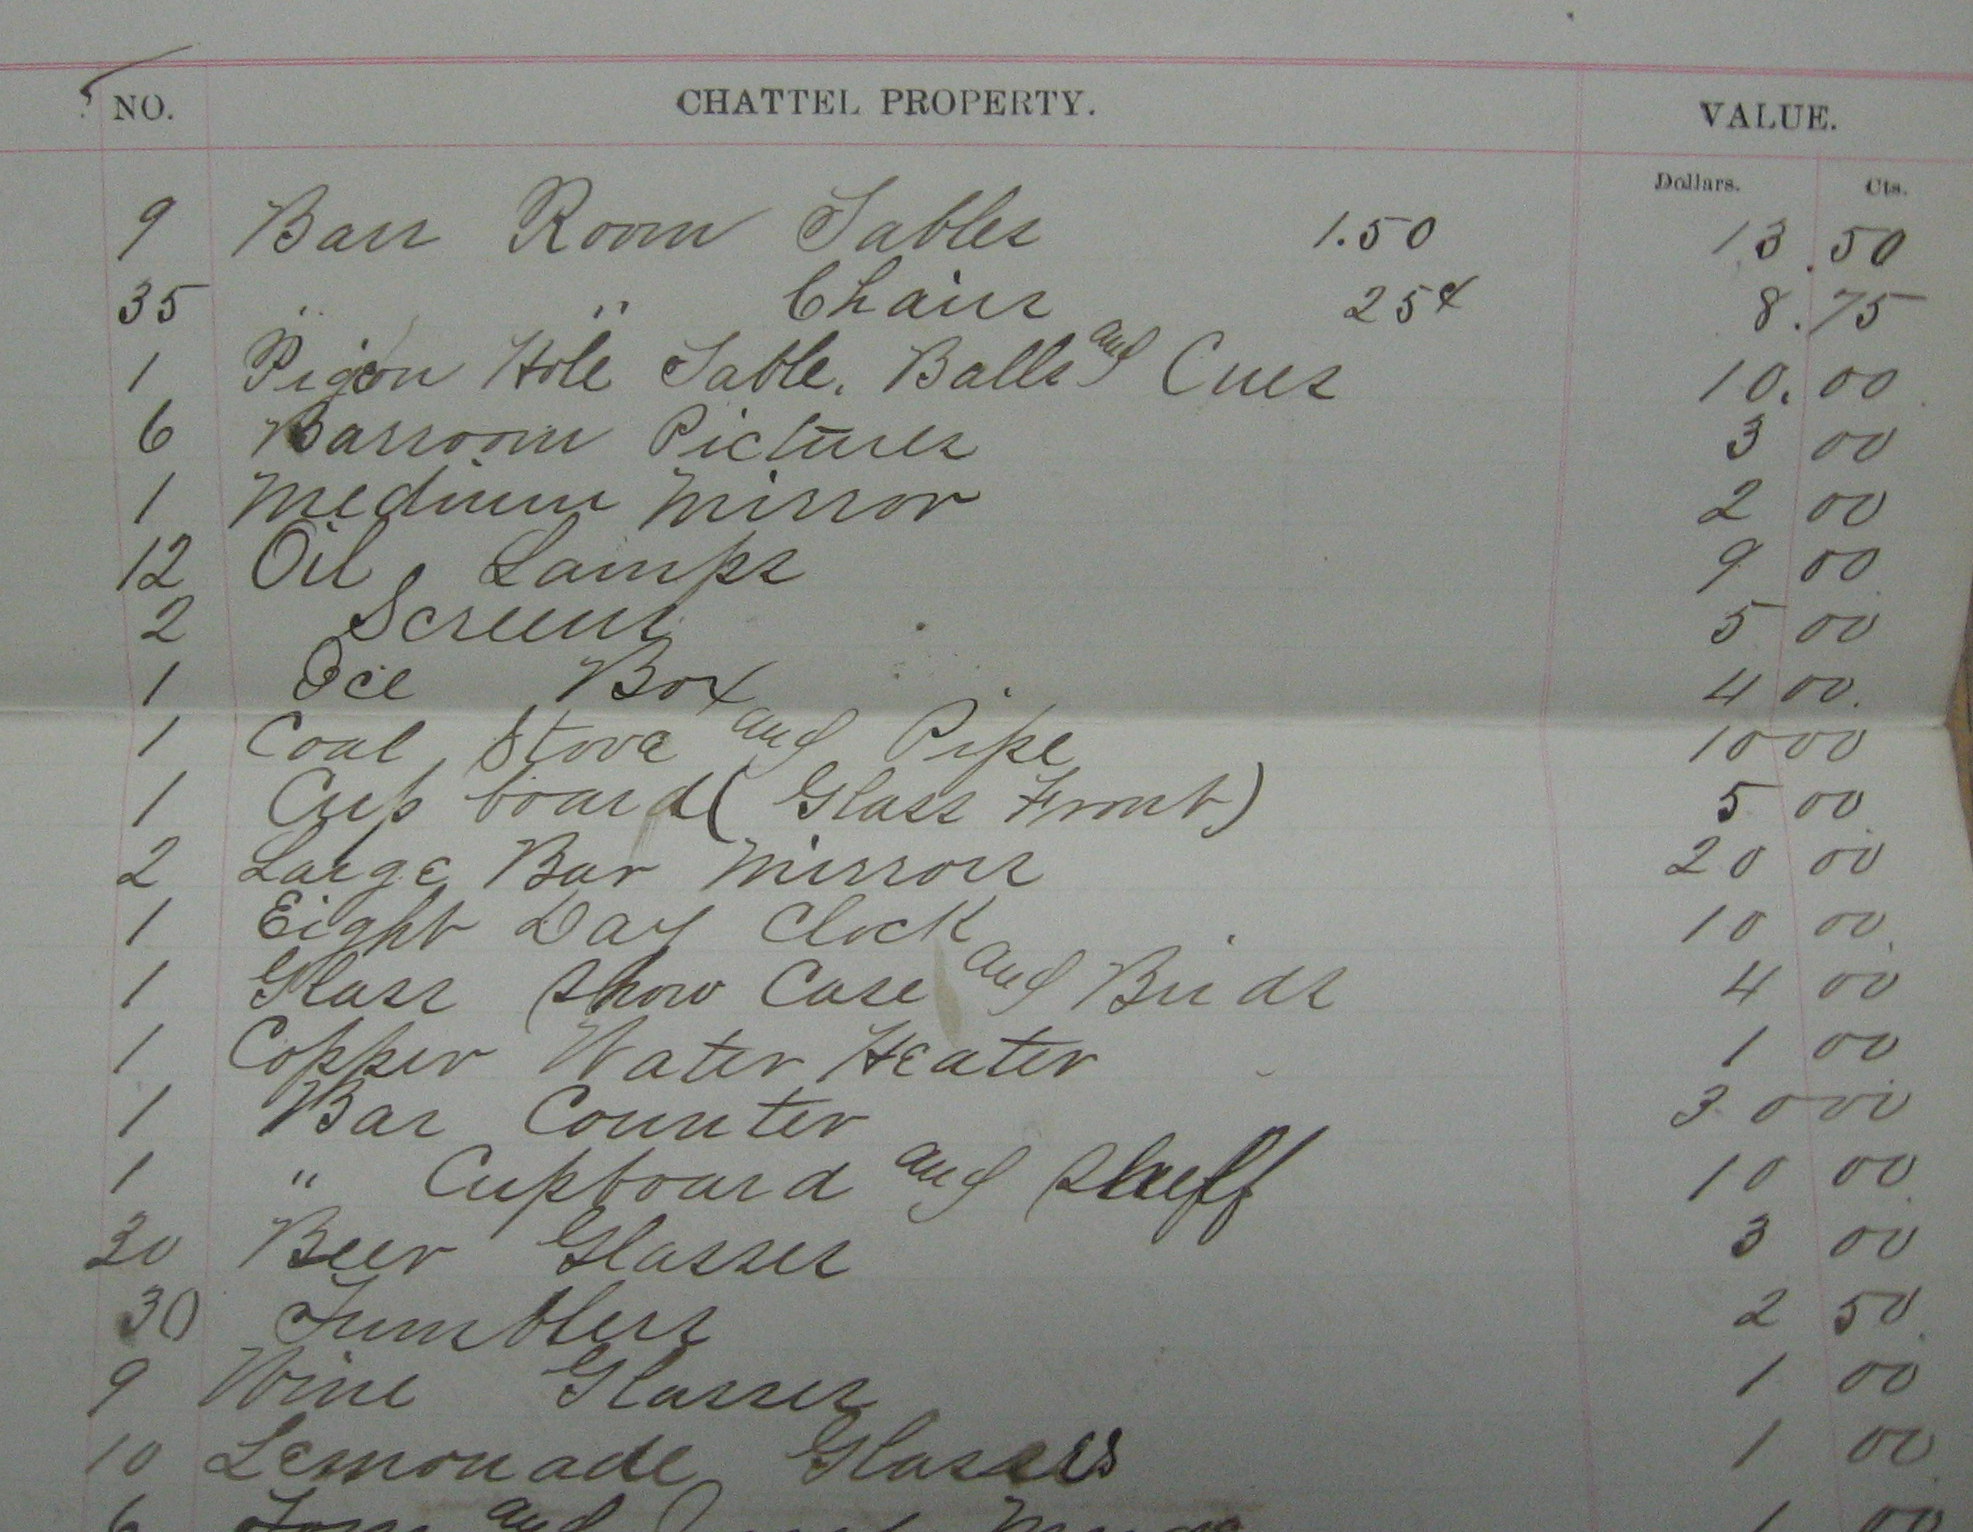 NO. CHATTEL PROPERTY. VALUE.
Dollars. Cts.
9 Barr Room Tables 1.50 13.50
35 " " Chairs 25¢ 8.75
1 Pigeon Hole Table, Balls and Cues 10.00
6 Barroom Pictures 3 00
1 Medium Mirror 2 00
12 Oil Lamps 9 00
2 Screens 5 00
1 Ice Box 4 00
1 Coal Stove and Pipe 10 00
1 Cup board (Glass Front) 5 00
2 Large Bar Mirrors 20 00
1 Eight Day Clock 10 00
1 Glass Show Case and Birds 4 00
1 Copper Water Heater 1 00
1 Bar Counter 30 00
1 " Cupboard and Shelf 10 00
30 Beer Glasses 3 00
30 Tumblers 2 50
9 Wine Glasses 1 00
10 Lemonade Glasses 1 00
6 and 1 00